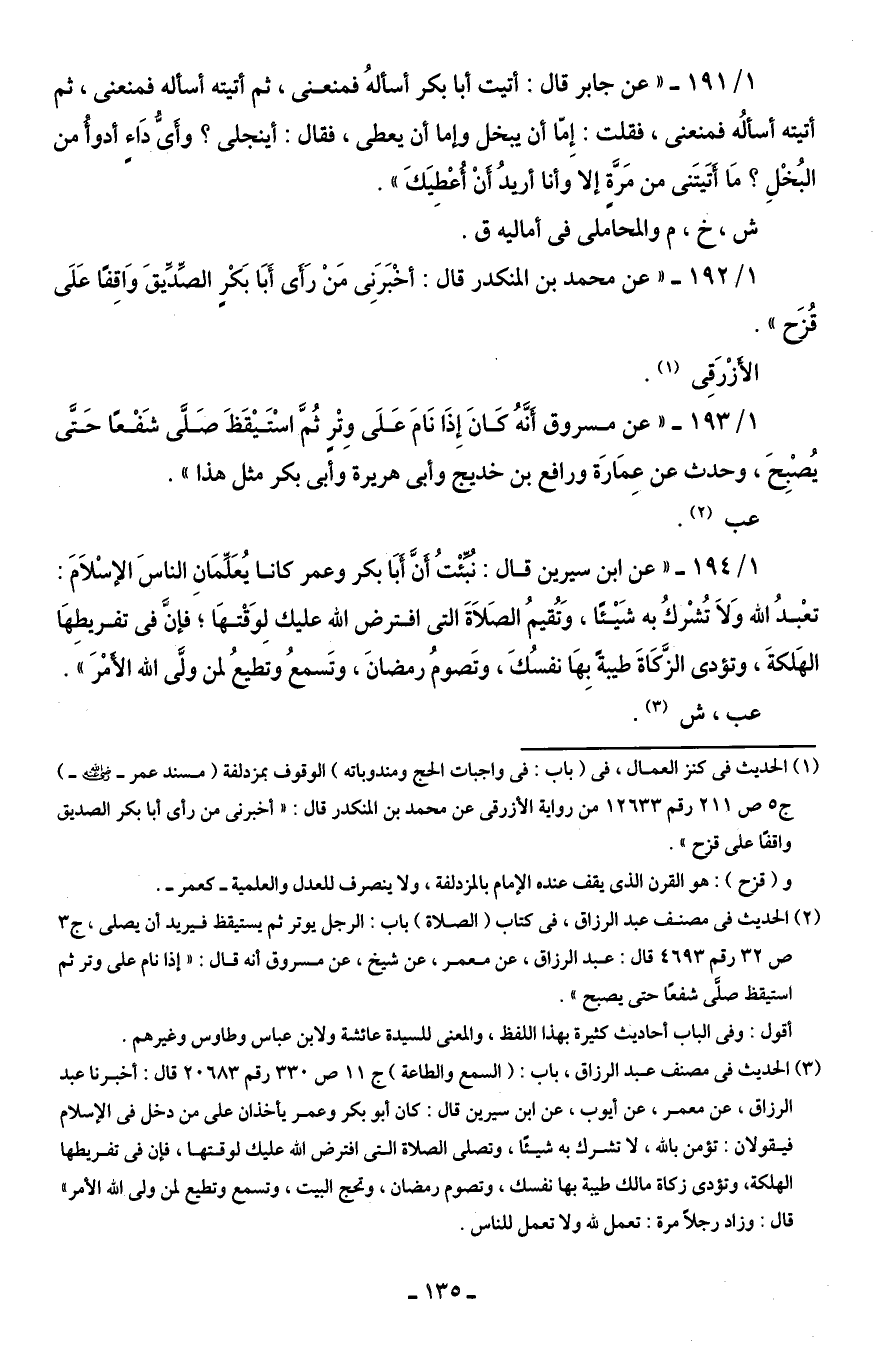 ١/ ١٩١ ـ « عن جابر قال : أتيت أبا بكر أسألهُ فمنعـنى ، ثم أتيته أسأله فمنعنى ، ثم
أتيته أسألُه فمنعنى ، فقلت : إمّا أن يبخل وإما أن يعطى ، فقال : أينجلى ؟ وأىُّ دَاءٍ أدوأُ من
البُخْلِ ؟ مَا أَتَيتَنى من مَرَّةٍ إلا وأنا أريدُ أَنْ أُعْطِيَكَ » .
ش ، خ ، م والمحاملى فى أماليه ق .
١/ ١٩٢ ـ « عن محمد بن المنكدر قال : أخْبَرَنِى مَنْ رَأَى أَبَا بَكْرٍ الصِّدِّيقَ وَاقِفًا عَلَى
قُزَح » .
الأَزْرَقِى (١) .
١/ ١٩٣ ـ « عن مسروق أَنَّهُ كَـانَ إذَا نَامَ عَـلَى وِتْرٍ ثُمَّ اسْتَـيْقَظَ صَـلَّى شَفْـعًا حَـتَّى
يُصْبِحَ ، وحدث عن عِمَارَة ورافع بن خديج وأبى هريرة وأبى بكر مثل هذا » .
عب (٢) .
١/ ١٩٤ ـ « عن ابن سيرين قـال : نُبِّئْتُ أنَّ أبَا بكر وعمر كانـا يُعَلِّمَانِ الناسَ الإسْلَامَ :
تعْبُـدُ الله وَلَا تُشْرِكُ به شَيْـئًا ، وَتُقيمُ الصَّلَاةَ التى افـترض الله عليك لوَقْتـهَا ؛ فإنَّ فى تفـريطِهَا
الهَلَكةَ ، وتؤدى الزَّكَاةَ طيبةً بِهَا نفسُكَ ، وتَصومُ رمضانَ ، وتَسمعُ وتطيعُ لمن ولَّى الله الأَمْرَ » .
عب ، ش (٣) .
(١) الحديث فى كنز العمال ، فى ( باب : فى واجبات الحج ومندوباته ) الوقوف بمزدلفة ( مـسند عمر ـ رضي الله عنه ـ )
ج٥ ص ٢١١ رقم ١٢٦٣٣ من رواية الأزرقى عن محمد بن المنكدر قال : « أخبرنى من رأى أبا بكر الصديق
واقفًا على قزح » .
و ( قزح ) : هو القرن الذى يقف عنده الإمام بالمزدلفة ، ولا ينصرف للعدل والعلمية ـ كعمر ـ .
(٢) الحديث فى مصنف عبد الرزاق ، فى كتاب ( الصـلاة ) باب : الرجل يوتر ثم يستيقظ فـيريد أن يصلى ، ج٣
ص ٣٢ رقم ٤٦٩٣ قال : عـبد الرزاق ، عن مـعمـر ، عن شيخ ، عن مـسروق أنه قـال : « إذا نام على وتر ثم
استيقظ صلَّى شفعًا حتى يصبح » .
أقول : وفى الباب أحاديث كثيرة بهذا اللفظ ، والمعنى للسيدة عائشة ولابن عباس وطاوس وغيرهم .
(٣) الحديث فى مصنف عبـد الرزاق ، باب : ( السمع والطاعة ) ج ١١ ص ٣٣٠ رقم ٢٠٦٨٣ قال : أخبـرنا عبد
الرزاق ، عن معمـر ، عن أيوب ، عن ابن سيرين قال : كان أبو بكر وعمـر يأخذان على من دخل فى الإسلام
فيـقولان : تؤمن بالله ، لا تشـرك به شيـئًا ، وتصلى الصلاة التـى افترض الله عليك لوقتـهـا ، فإن فى تفـريطها
الهلكة، وتؤدى زكاة مالك طيبة بها نفسك ، وتصوم رمضان ، وتحج البيت ، وتسمع وتطيع لمن ولى الله الأمر»
قال : وزاد رجلاً مرة : تعمل لله ولا تعمل للناس .
ـ ١٣٥ ـ